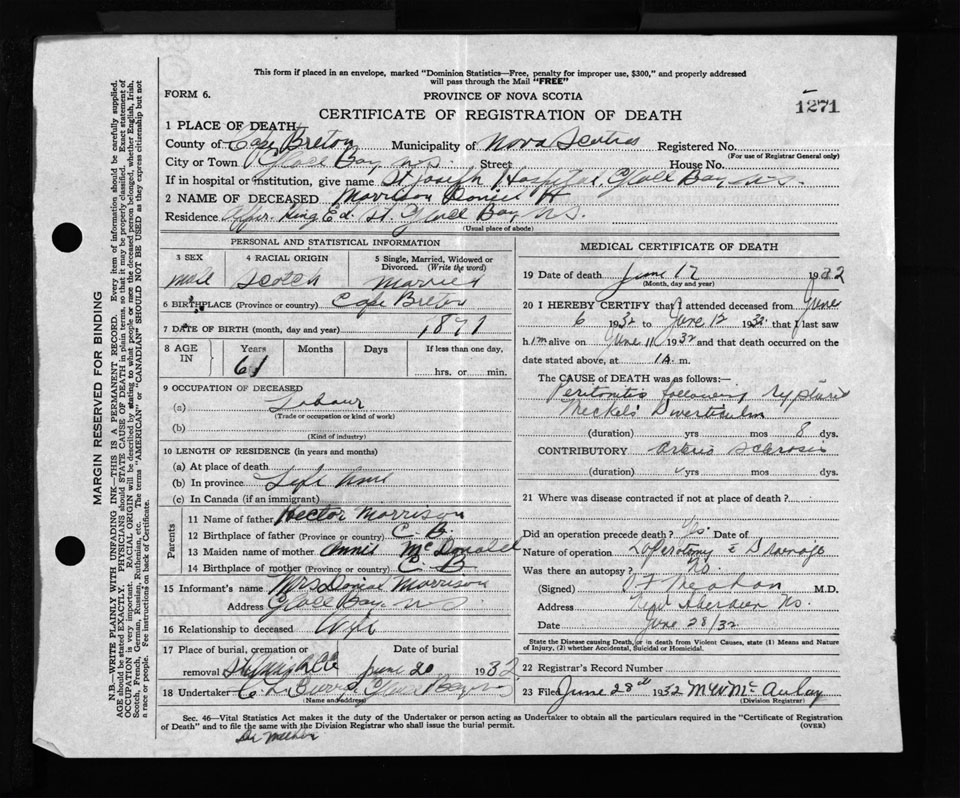 This form if placed in an envelope, marked "Dominion Statistics—Free, penalty for improper use, $300," and properly addressed
will pass through the Mail "FREE"
FORM 6.
PROVINCE OF NOVA SCOTIA
1271
CERTIFICATE OF REGISTRATION OF DEATH
1 PLACE OF DEATH
County of Cape Breton Municipality of Nova Scotia Registered No.
(For use of Registrar General only)
City or Town Glace Bay N.S. Street House No.
If in hospital or institution, give name St Joseph Hospital, Glace Bay N.S.
2 NAME OF DECEASED Morrison
Residence King Ed. St. Glace Bay N.S.
(Usual place of abode)
PERSONAL AND STATISTICAL INFORMATION
3 SEX 4 RACIAL ORIGIN 5 Single, Married, Widowed or Divorced. (Write the word)
male Scotch Married
6 BIRTHPLACE (Province or country) Cape Breton
7 DATE OF BIRTH (month, day and year) 1871
8 AGE IN Years Months Days If less than one day,
61 hrs. or min.
9 OCCUPATION OF DECEASED
(a) Labour
(Trade or occupation or kind of work)
(b)
(Kind of industry)
10 LENGTH OF RESIDENCE (in years and months)
(a) At place of death
(b) In province Life time
(c) In Canada (if an immigrant)
Parents
11 Name of father Hector Morrison
12 Birthplace of father (Province or country) C. B.
13 Maiden name of mother Annie McDonald
14 Birthplace of mother (Province or country) C. B.
15 Informant's name Mrs Morrison
Address Glace Bay N.S.
16 Relationship to deceased Wife
17 Place of burial, cremation or removal Date of burial
June 20 1932
18 Undertaker Glace Bay
(Name and address)
MEDICAL CERTIFICATE OF DEATH
19 Date of death June 12 1932
(Month, day and year)
20 I HEREBY CERTIFY that I attended deceased from June
6 1932 to June 12 1932 that I last saw
him alive on June 11 1932 and that death occurred on the
date stated above, at 1 A. m.
The CAUSE of DEATH was as follows:—
Peritonitis following ruptured
Meckels Diverticulum
(duration) yrs mos 8 dys.
CONTRIBUTORY Arterio Sclerosis
(duration) yrs mos dys.
21 Where was disease contracted if not at place of death?
Did an operation precede death? Yes. Date of
Nature of operation Laperotomy & Drainage
Was there an autopsy? No.
(Signed) M.D.
Address New Aberdeen N.S.
Date June 28/32
State the Disease causing Death, or in death from Violent Causes, state (1) Means and Nature
of Injury, (2) whether Accidental, Suicidal or Homicidal.
22 Registrar's Record Number
23 Filed June 28th 1932 McAulay
(Division Registrar)
Sec. 46—Vital Statistics Act makes it the duty of the Undertaker or person acting as Undertaker to obtain all the particulars required in the "Certificate of Registration
of Death" and to file the same with the Division Registrar who shall issue the burial permit.
(OVER)
MARGIN RESERVED FOR BINDING
N.B.—WRITE PLAINLY WITH UNFADING INK—THIS IS A PERMANENT RECORD. Every item of information should be carefully supplied.
AGE should be stated EXACTLY. PHYSICIANS should STATE CAUSE OF DEATH in plain terms, so that it may be properly classified. Exact statement of
OCCUPATION is very important. RACIAL ORIGIN will be described by stating to what people or race the deceased person belonged, whether English, Irish,
Scotch, French, German, Russian, Ruthenian, etc. The terms "AMERICAN" or "CANADIAN" SHOULD NOT BE USED as they express citizenship but not
a race or people. Fee instructions on back of Certificate.